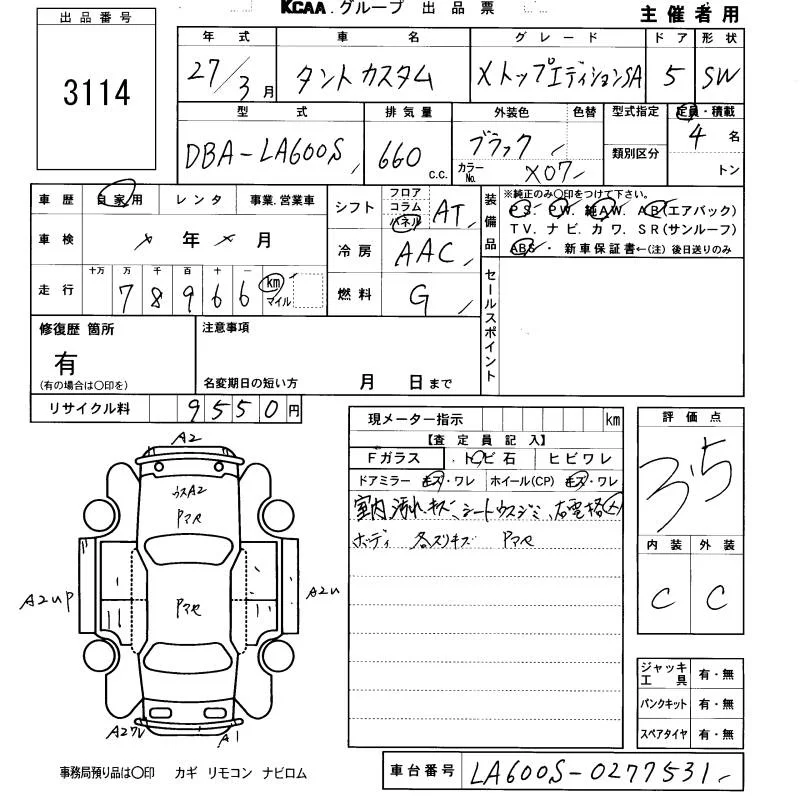 KCAA.グループ 出品票
主催者用
出品番号
3114
年式 車名 グレード ドア 形状
27/3月 タントカスタム XトップエディションSA 5 SW
型式 排気量 外装色 色替 型式指定 定員・積載
DBA-LA600S 660 c.c. ブラック 4 名
カラーNo. X07 類別区分 トン
車歴 自家用 レンタ 事業.営業車
シフト フロア コラム パネル AT
装備品 ※純正のみ〇印をつけて下さい。
PS. PW. 純AW. AB(エアバック)
TV. ナビ. カワ. SR(サンルーフ)
ABS・ 新車保証書←(注) 後日送りのみ
車検 ×年×月
冷房 AAC
走行 十万 万 千 百 十 一
78966 km マイル
燃料 G
セールスポイント
修復歴 箇所
有
(有の場合は〇印を)
注意事項
名変期日の短い方 月 日まで
リサイクル料 9550円
現メーター指示 km
【査定員記入】
Fガラス トビ石 ヒビワレ
ドアミラー キズ・ワレ ホイール(CP) キズ・ワレ
室内汚れキズ、シートウスジミ、右電格
ボディ 各スリキズ Pマセ
評価点
3.5
内装 外装
C C
A2
ウスA2
Pマセ
Pマセ
A2up
A2u
A1
ジャッキ工具 有・無
パンクキット 有・無
スペアタイヤ 有・無
事務局預り品は〇印 カギ リモコン ナビロム
車台番号 LA600S-0277531